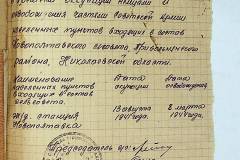 оккупации немцами и
освобождения частями Советской Армии
населенных пунктов входящих в состав
Новополтавского сельсовета Привольнянского
района, Николаевской области.
Наименование
населенных пунктов
входящих в состав
сельсовета.
Дата
оккупации
Дата
освобождения
Ж/д. станция
Новополтавка
13 августа
1941 года.
8 марта
1944 года.
Председатель